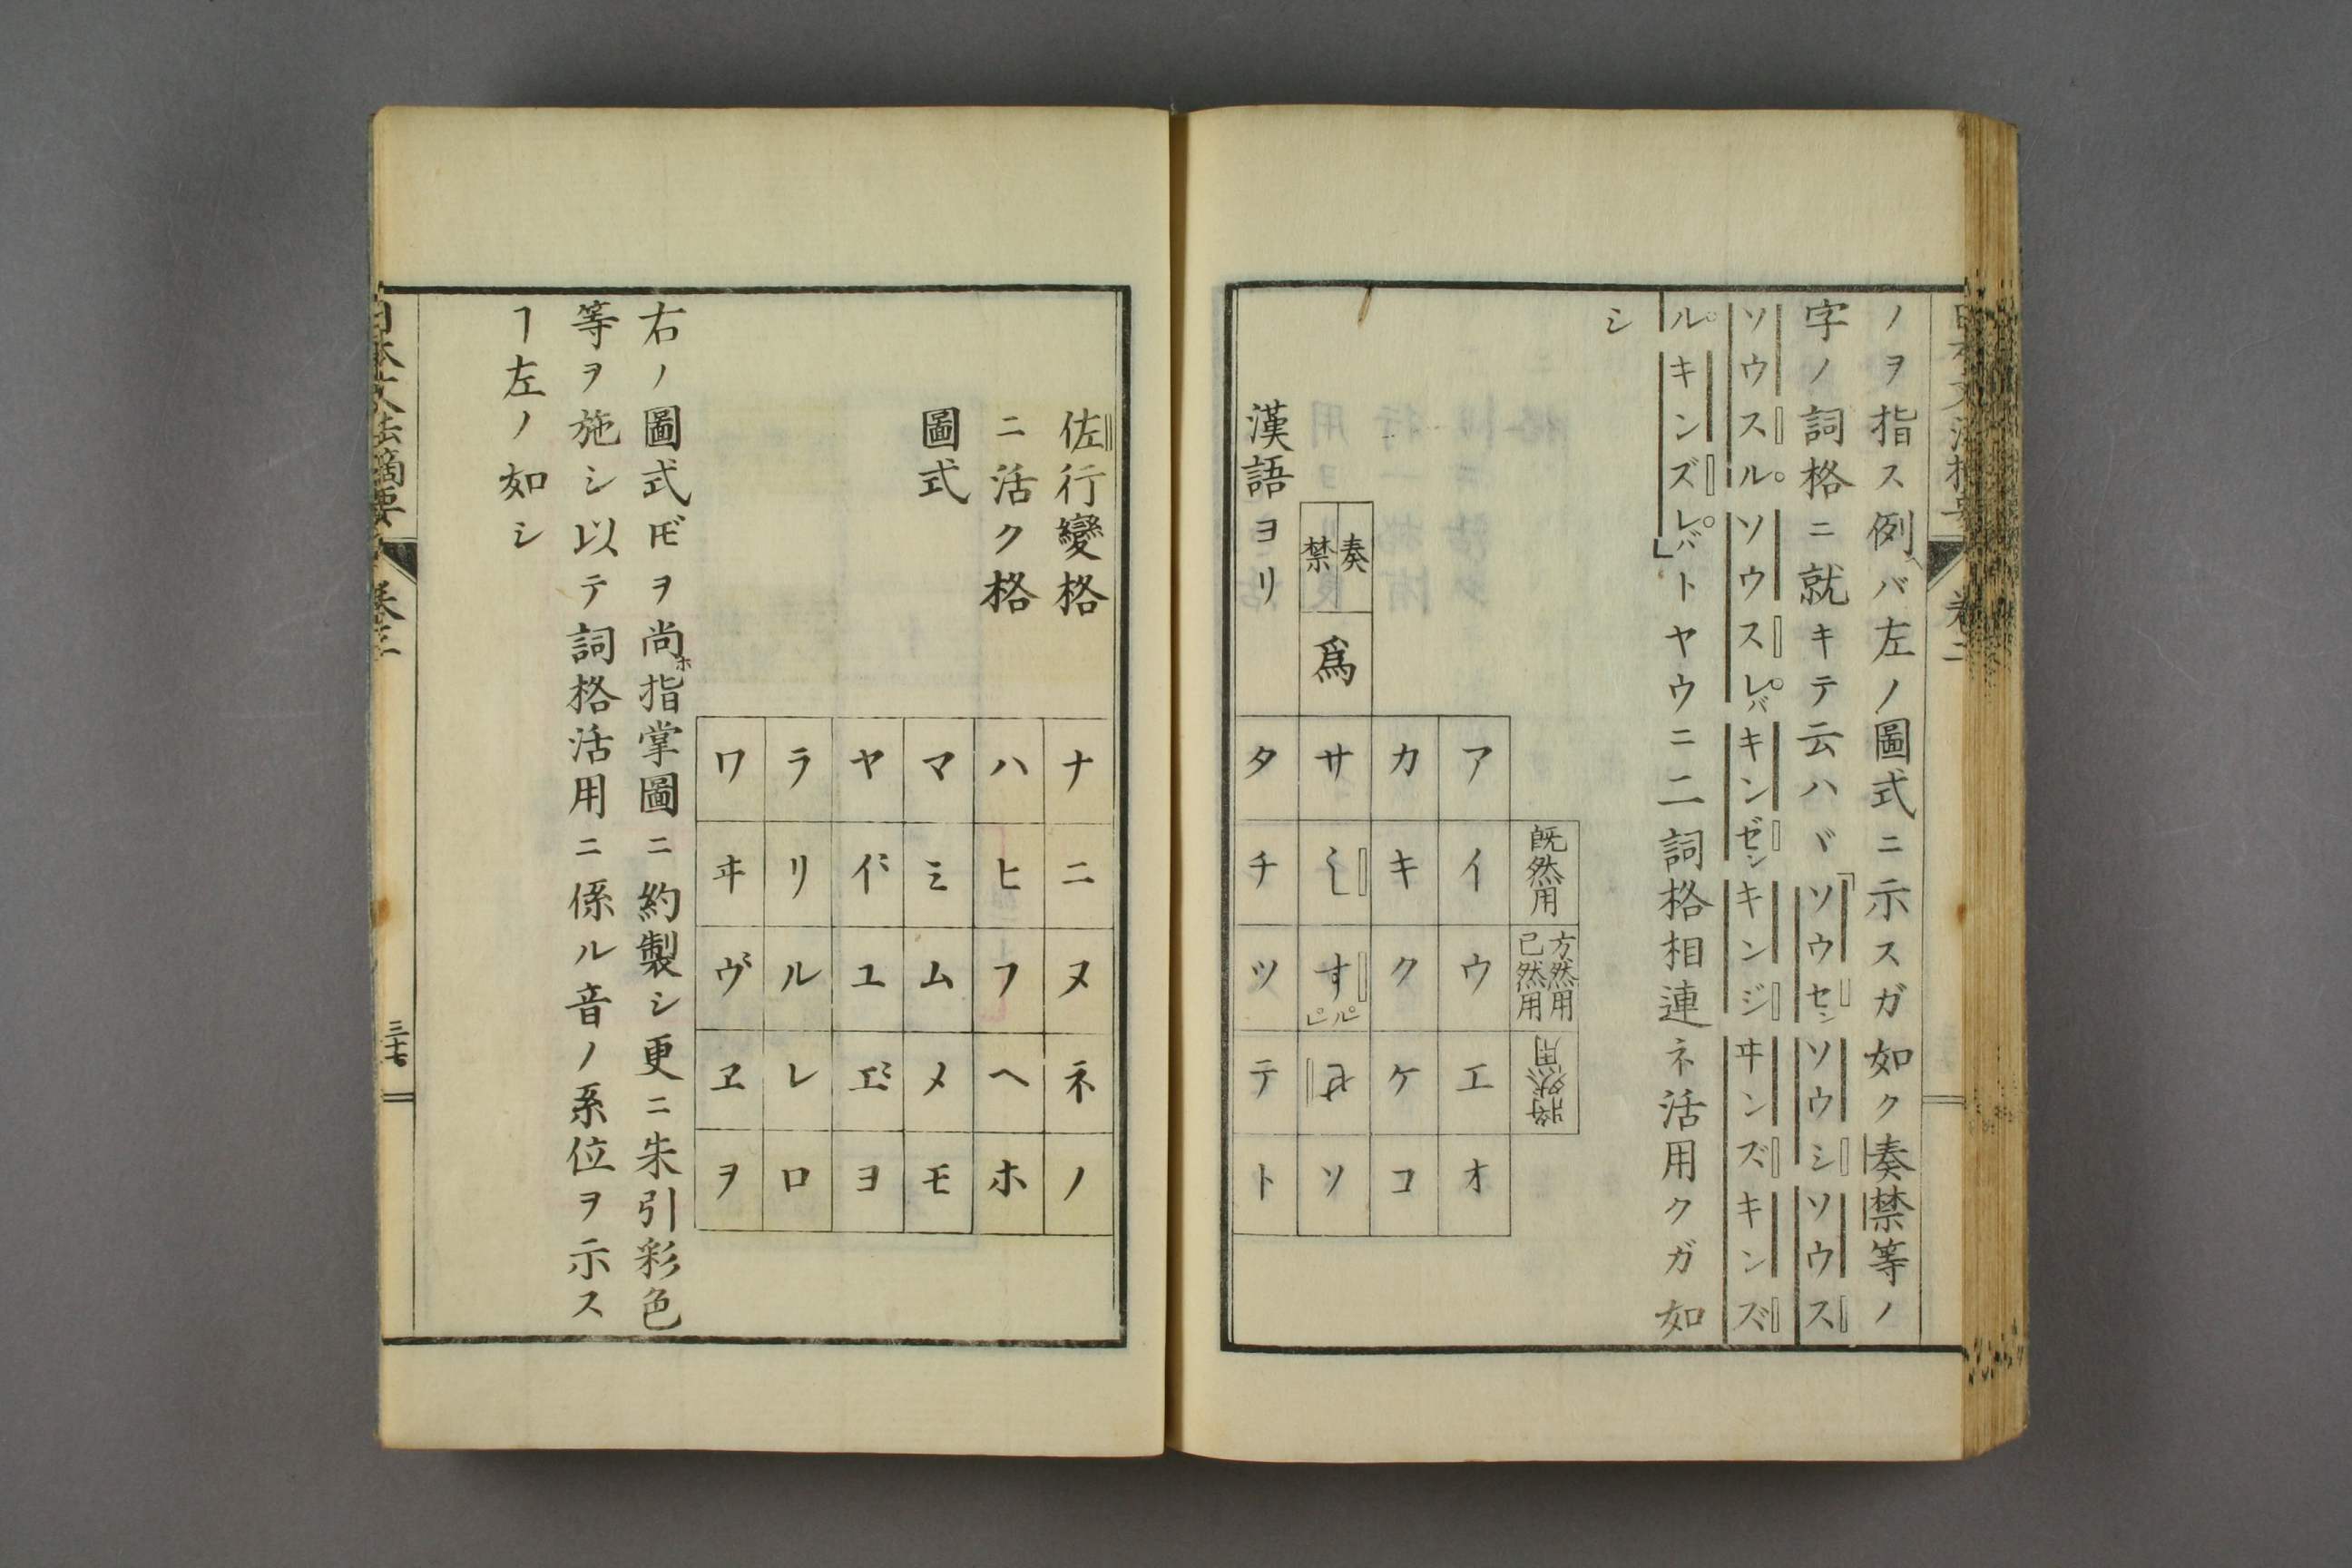 ノヲ指ス例バ左ノ圖式ニ示スガ如ク奏禁等ノ
字ノ詞格ニ就キテ云ハヾ「ソウセンソウシソウス
ソウスルソウスレバキンゼンキンジヰンズキンズ
ルキンズレバ」トヤウニ二詞格相連ネ活用クガ如
シ
既然用
方然用
已然用
將然用
アイウエオ
カキクケコ
奏
禁
爲
サしすせソ
ル
レ
タチツテト
漢語ヨリ
佐行變格
ニ活ク格
圖式
ナニヌネノ
ハヒフヘホ
マミムメモ
ヤイ゙ユエ゙ヨ
ラリルレロ
ワヰヴヱヲ
右ノ圖式𪜈ヲ尚ホ指掌圖ニ約製シ更ニ朱引彩色
等ヲ施シ以テ詞格活用ニ係ル音ノ系位ヲ示ス
ヿ左ノ如シ
日本文法摘要
卷二
三十七